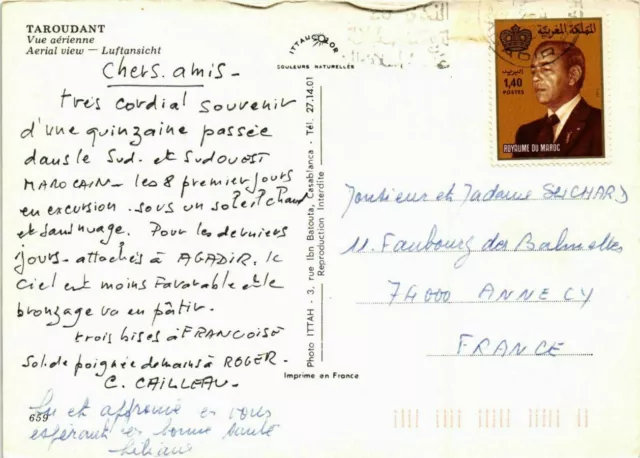 TAROUDANT
Vue aérienne
Aerial view — Luftansicht
ITTAUCOLOR
COULEURS NATURELLES
المملكة المغربية
البريد
1,40
POSTES
ROYAUME DU MAROC
Chers amis -
très cordial souvenir
d'une quinzaine passée
dans le Sud. et Sudouest
MAROCAIN - les 8 premiers jours
en excursion sous un soleil chaud
et sans nuage. Pour les derniers
jours - attachés à AGADIR, le
Ciel est moins favorable et le
bronzage va en pâtir.
trois bises à FRANCOISE
Solide poignée de mains à ROGER -
C. CAILLEAU -
Lu et approuvé en vous
espérant en bonne santé
Liliane
659
Photo ITTAH - 3, rue Ibn Batouta, Casablanca - Tél. 27.14.01
Reproduction Interdite
Imprime en France
Monsieur et Madame SUCHARD
11. Faubourg des Balmettes
74000 ANNECY
FRANCE